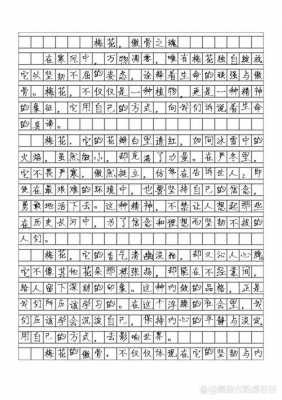 梅花，傲骨之魂
在寒风中，万物凋零，唯有梅花独自绽放，
它以坚韧不屈的姿态，诠释着生命的顽强与傲
骨。梅花，不仅仅是一种植物，更是一种精神
的象征，它用自己的方式，向我们诉说着生命
的真谛。
梅花，它的花瓣白里透红，如同冰雪中的
火焰，虽然微小，却充满了力量。在严冬里，
它不畏严寒，傲然挺立，仿佛在告诉世人：即
使在最艰难的环境中，也要坚持自己的信念，
勇敢地活下去。这种精神，不禁让人想起那些
在历史长河中，为了信念和理想而坚韧不拔的
人们。
梅花，它的香气清幽淡雅，却又沁人心脾。
它不像其他花朵那样张扬，却能在不经意间，
给人留下深刻的印象。这种内敛的品格，正是
我们所应该学习的。在这个浮躁的社会里，我
们应该学会沉淀自己，保持内心的平静与淡定，
用自己的方式，去影响世界。
梅花的傲骨，不仅仅体现在它的坚韧与内